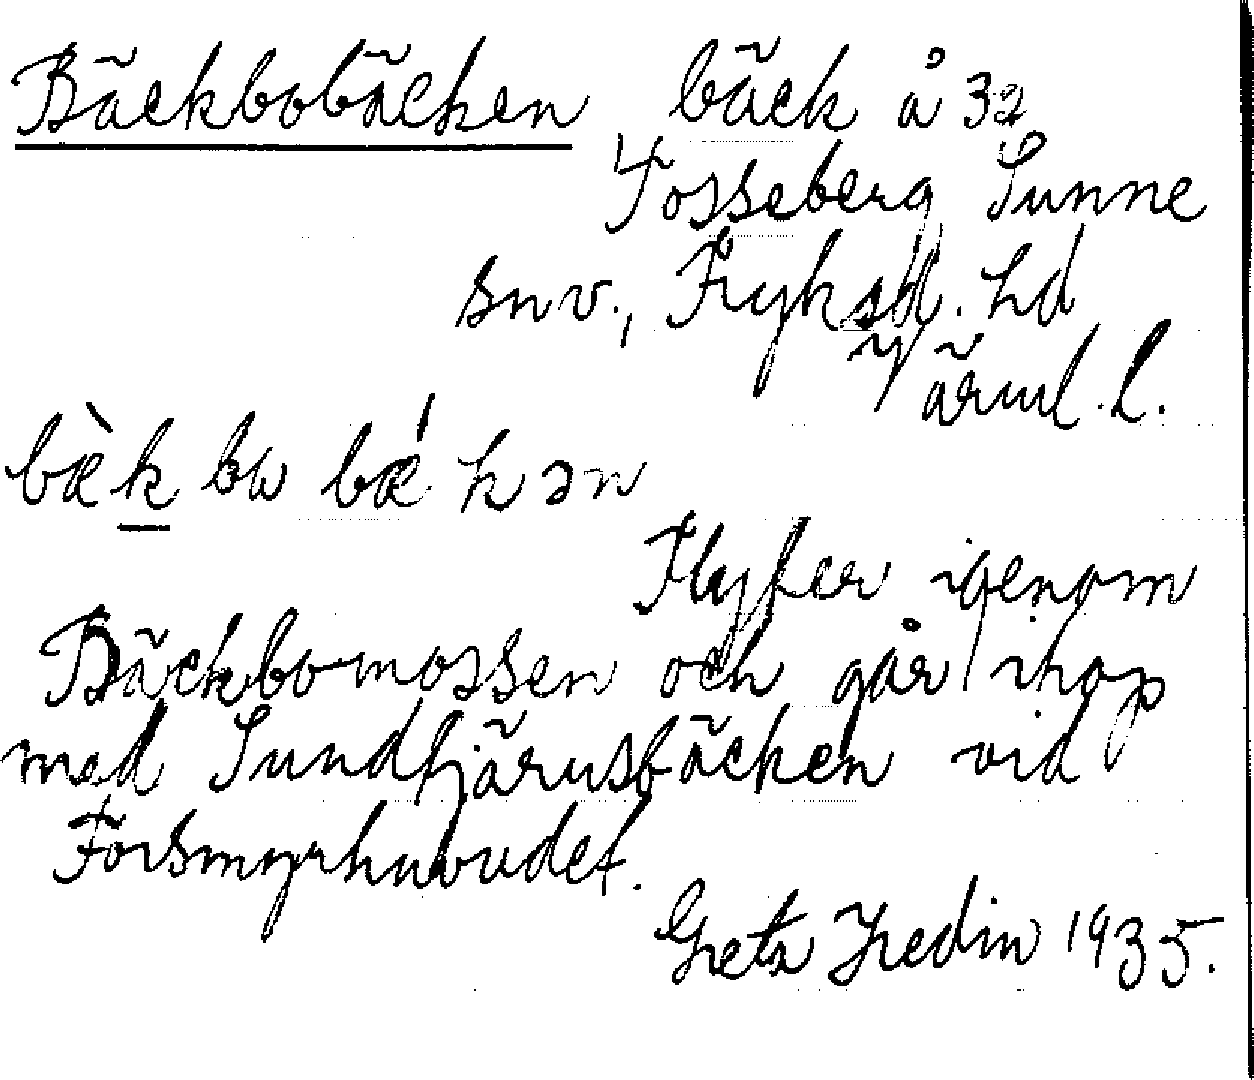 Bäckbobäcken bäck å 32
Fosseberg Sunne
snv., Fryksd. hd
Värml. l.
bæ̀k bω bǽ k ən
Flyter igenom
Bäckbomossen och går ihop
med Sundtjärnsbäcken vid
Forsmyrhuvudet.
Greta Hedin 1935.